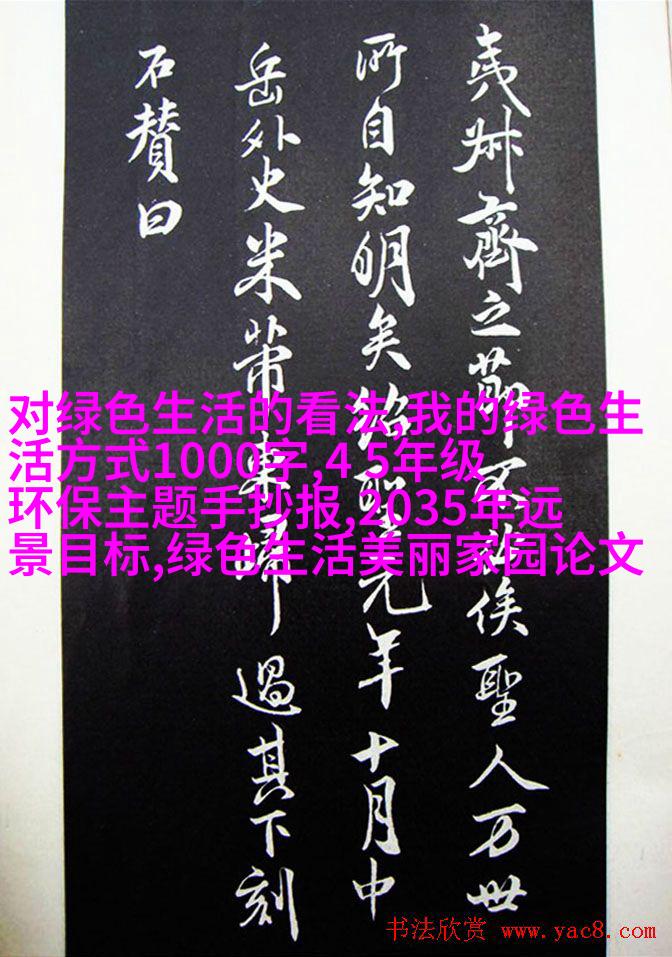 夷叔齊之節不俟聖人万世
所自知明矣紹聖元年十月中
岳外史米芾東歸過其下刻
石賛曰
对绿色生活的看法,我的绿色生
活方式1000字,4 5年级
环保主题手抄报,2035年远
景目标,绿色生活美丽家园论文
书法欣赏 www.yac8.com